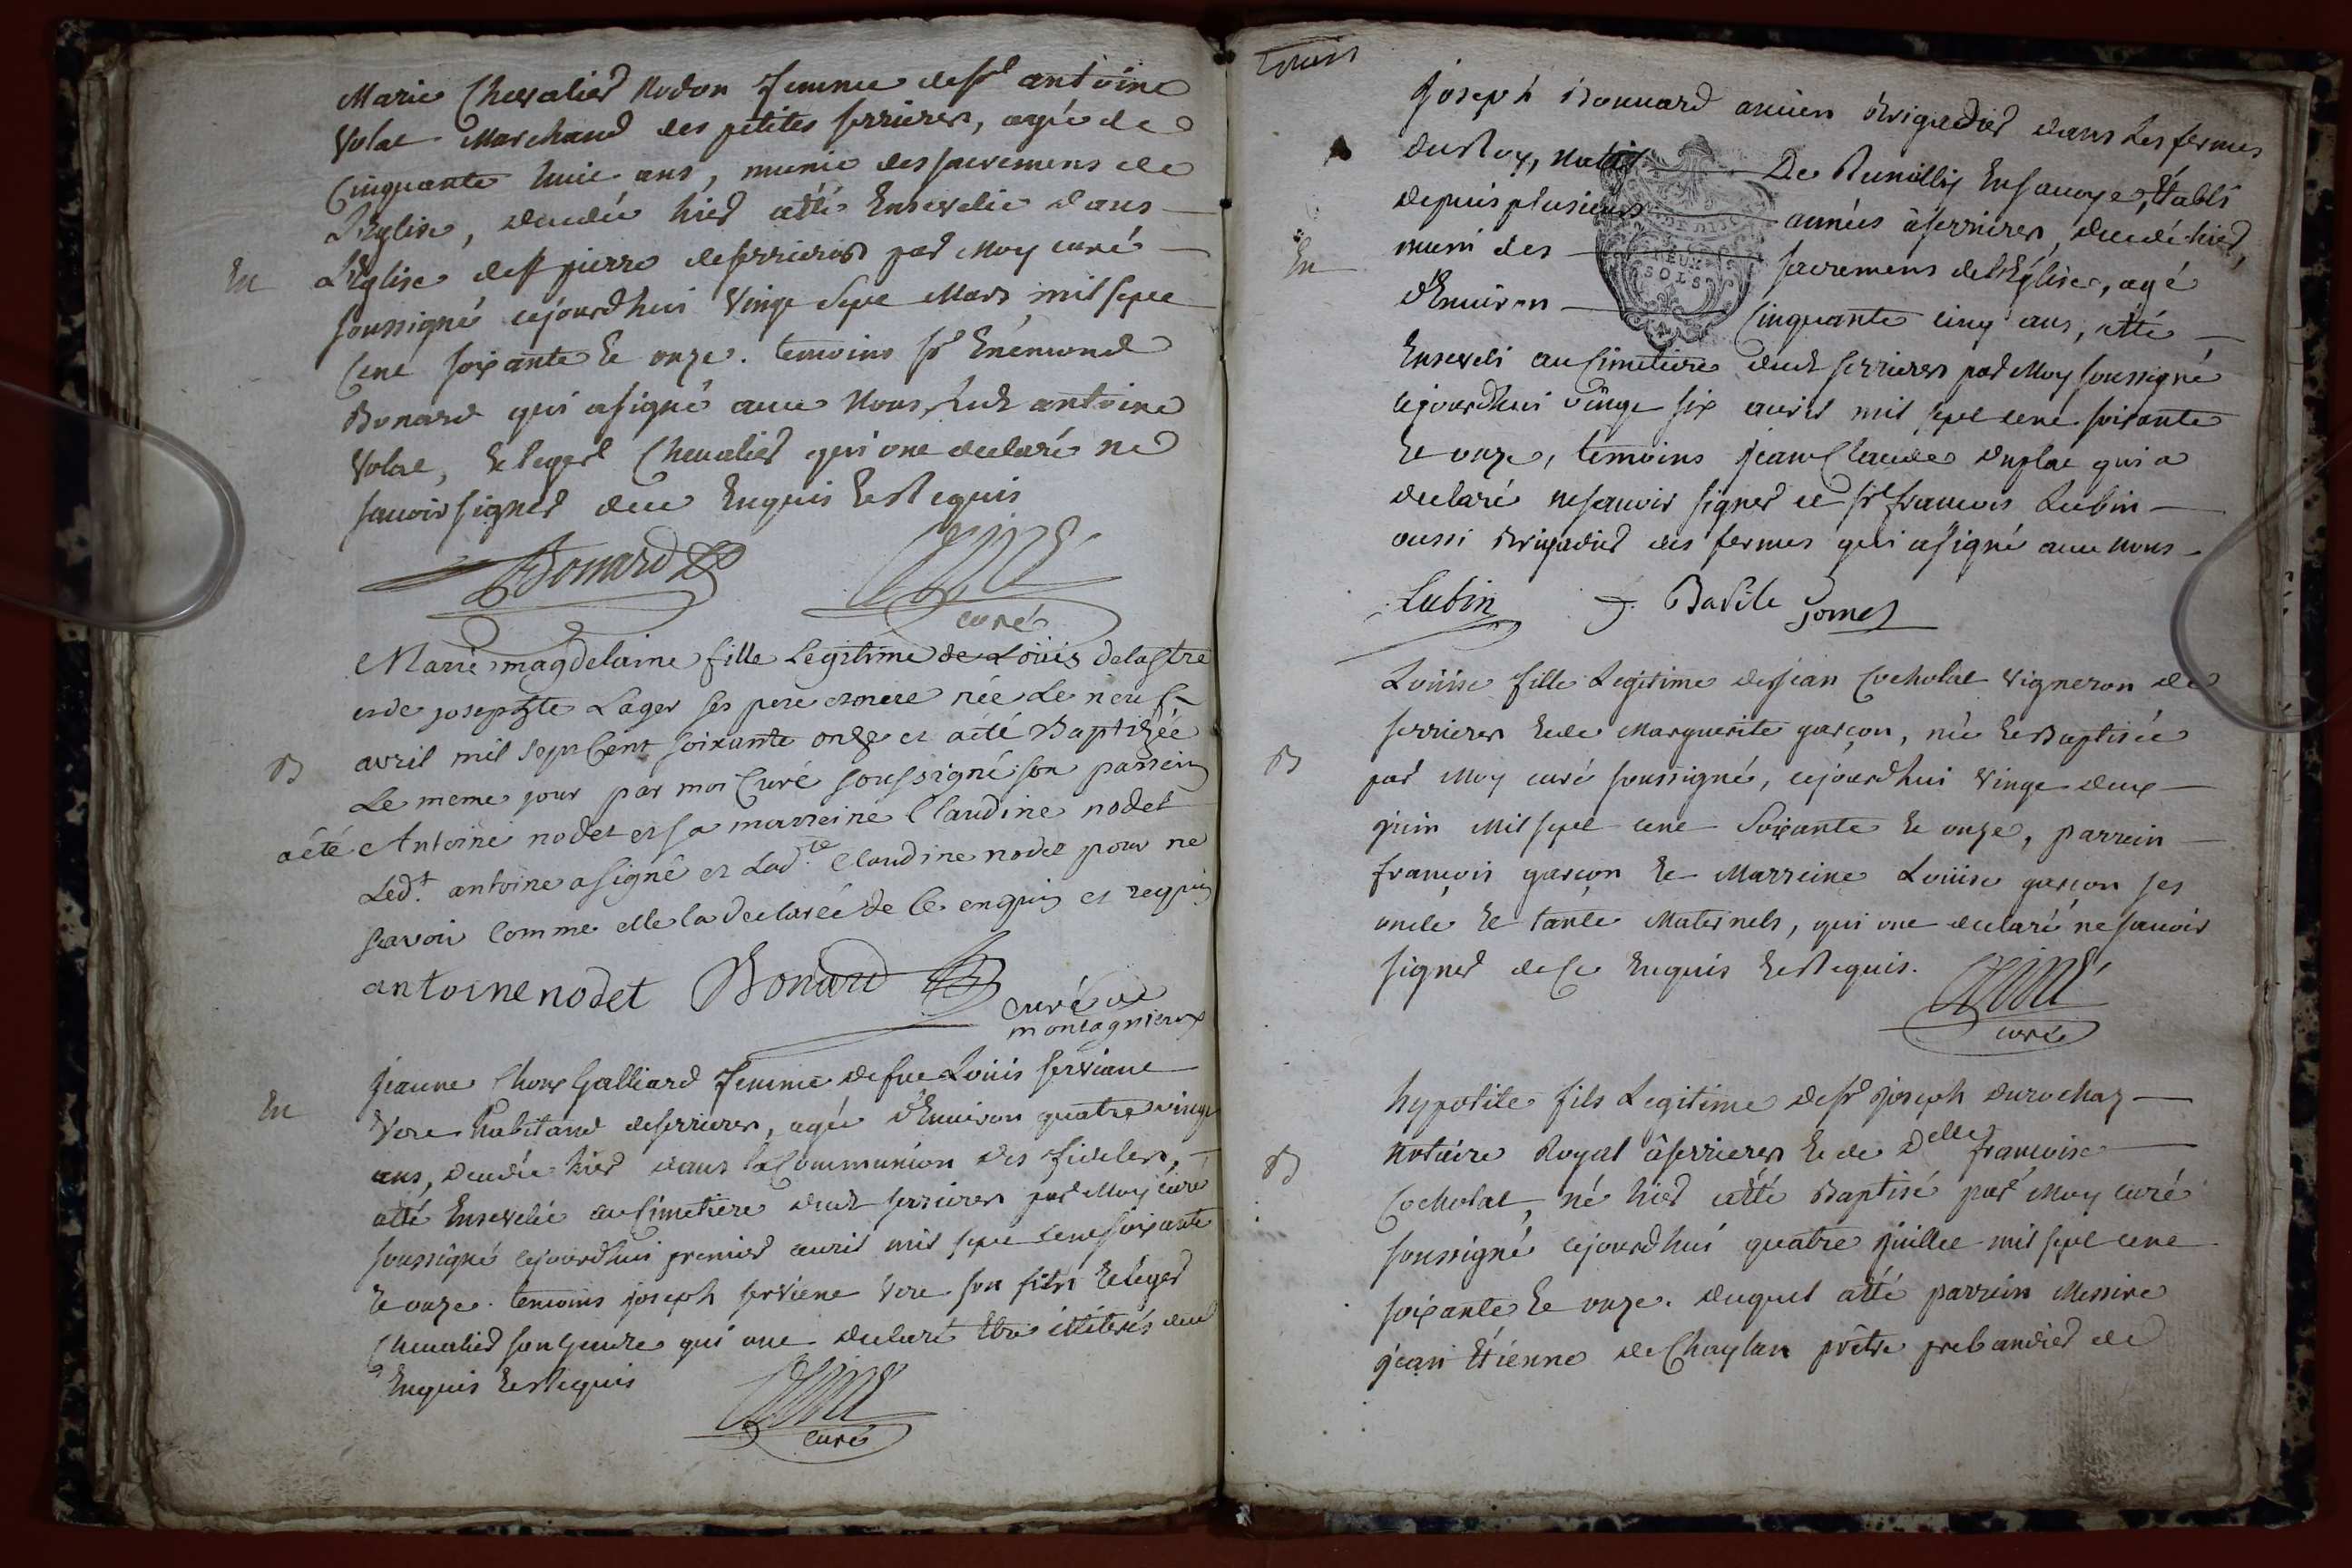 Marie Chevalier Nodon femme de sr antoine
Volat Marchand des petites serrieres, agée de
Cinquante huit ans, munie des sacremens de
L'Eglise, decedée hier a été Ensevelie dans
En
L'Eglise de st pierre de serrieres par Moy curé
soussigné cejourdhui vingt sept Mars mil sept
Cent soixante Et onze. temoins sr Enémond
Bonard qui a signé avec Nous, ledt antoine
Volat, Et Leger Chevalier qui ont declaré ne
savoir signer dece Enquis Et Requis
Bonard
curé
Marie magdelaine fille Legitime de Loüis delastre
et de josephte Lager ses pere et mere née Le neuf
avril mil sept Cent soixante onze et a été Baptizée
B
Le meme jour par moi Curé soussigné son parrein
a été Antoine nodet et sa marreine Claudine nodet
Ledt. antoine a signé et Ladte. Claudine nodet pour ne
scavoir comme elle la declarée de Ce enquis et requis
antoine nodet Bonard
curé de
montagnieux
jeanne Choux Galliard femme de feu Loüis servient
En
Vere habitant de serrieres, agée d'Environ quatre vingt
ans, decedée hier dans la Communion des fideles,
a été Ensevelie au Cimetiere dudt serrieres par Moy curé
soussigné cejourdhui premier avril mil sept cent soixante
Et onze. temoins joseph servient Vere son fils Et leger
Chevalier son Gendre qui ont declaré Etre illiterés dece
Enquis Et Requis
curé
joseph Bonnard ancien Brigadier dans Les fermes
du Roy, natif De Rumilly En savoye, Etabli
depuis plusieurs années â serrieres, decedé hier,
En
muni des sacremens de L'Eglise, agé
DEUX
SOLS
d'Environ Cinquante cinq ans, a été
Enseveli au Cimetiere dudt serrieres par Moy soussigné
cejourdhui vingt six avril mil sept cent soixante
Et onze, temoins jean Claude duplat qui a
declaré ne savoir signer et sr francois Lubin
aussi Brigadier des fermes qui a signé avec nous
Lubin
Loüise fille Legitime de jean Cocholat Vigneron de
serrieres Et de Marguerite garçon, née Et Baptisée
B
par Moy curé soussigné, cejourdhui Vingt deux
juin Mil sept cent Soixante Et onze, parrein
françois garçon Et Marreine Loüise garçon ses
oncle Et tante Maternels, qui ont declaré ne savoir
signer de Ce Enquis Et Requis.
curé
hypolite fils Legitime de sr joseph durochaz
Notaire Royal â serrieres Et de Delle francoise
B
Cocholat, né hier a été Baptisé par Moy curé
soussigné cejourdhui quatre juillet mil sept cent
soixante Et onze. duquel a été parrein Messire
jean Etienne de Chaylan prêtre prebandier de